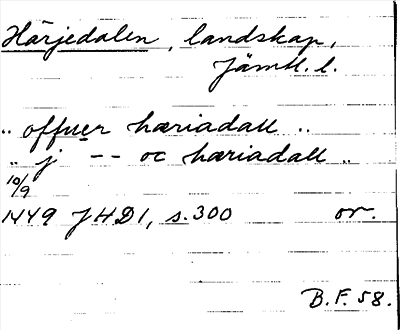 Härjedalen, landskap,
Jämtl. l.
.. offuer hæriadall ..
.. j -- oc hæriadall ..
10/9
1449 JHD1, s. 300 or.
B.F. 58.